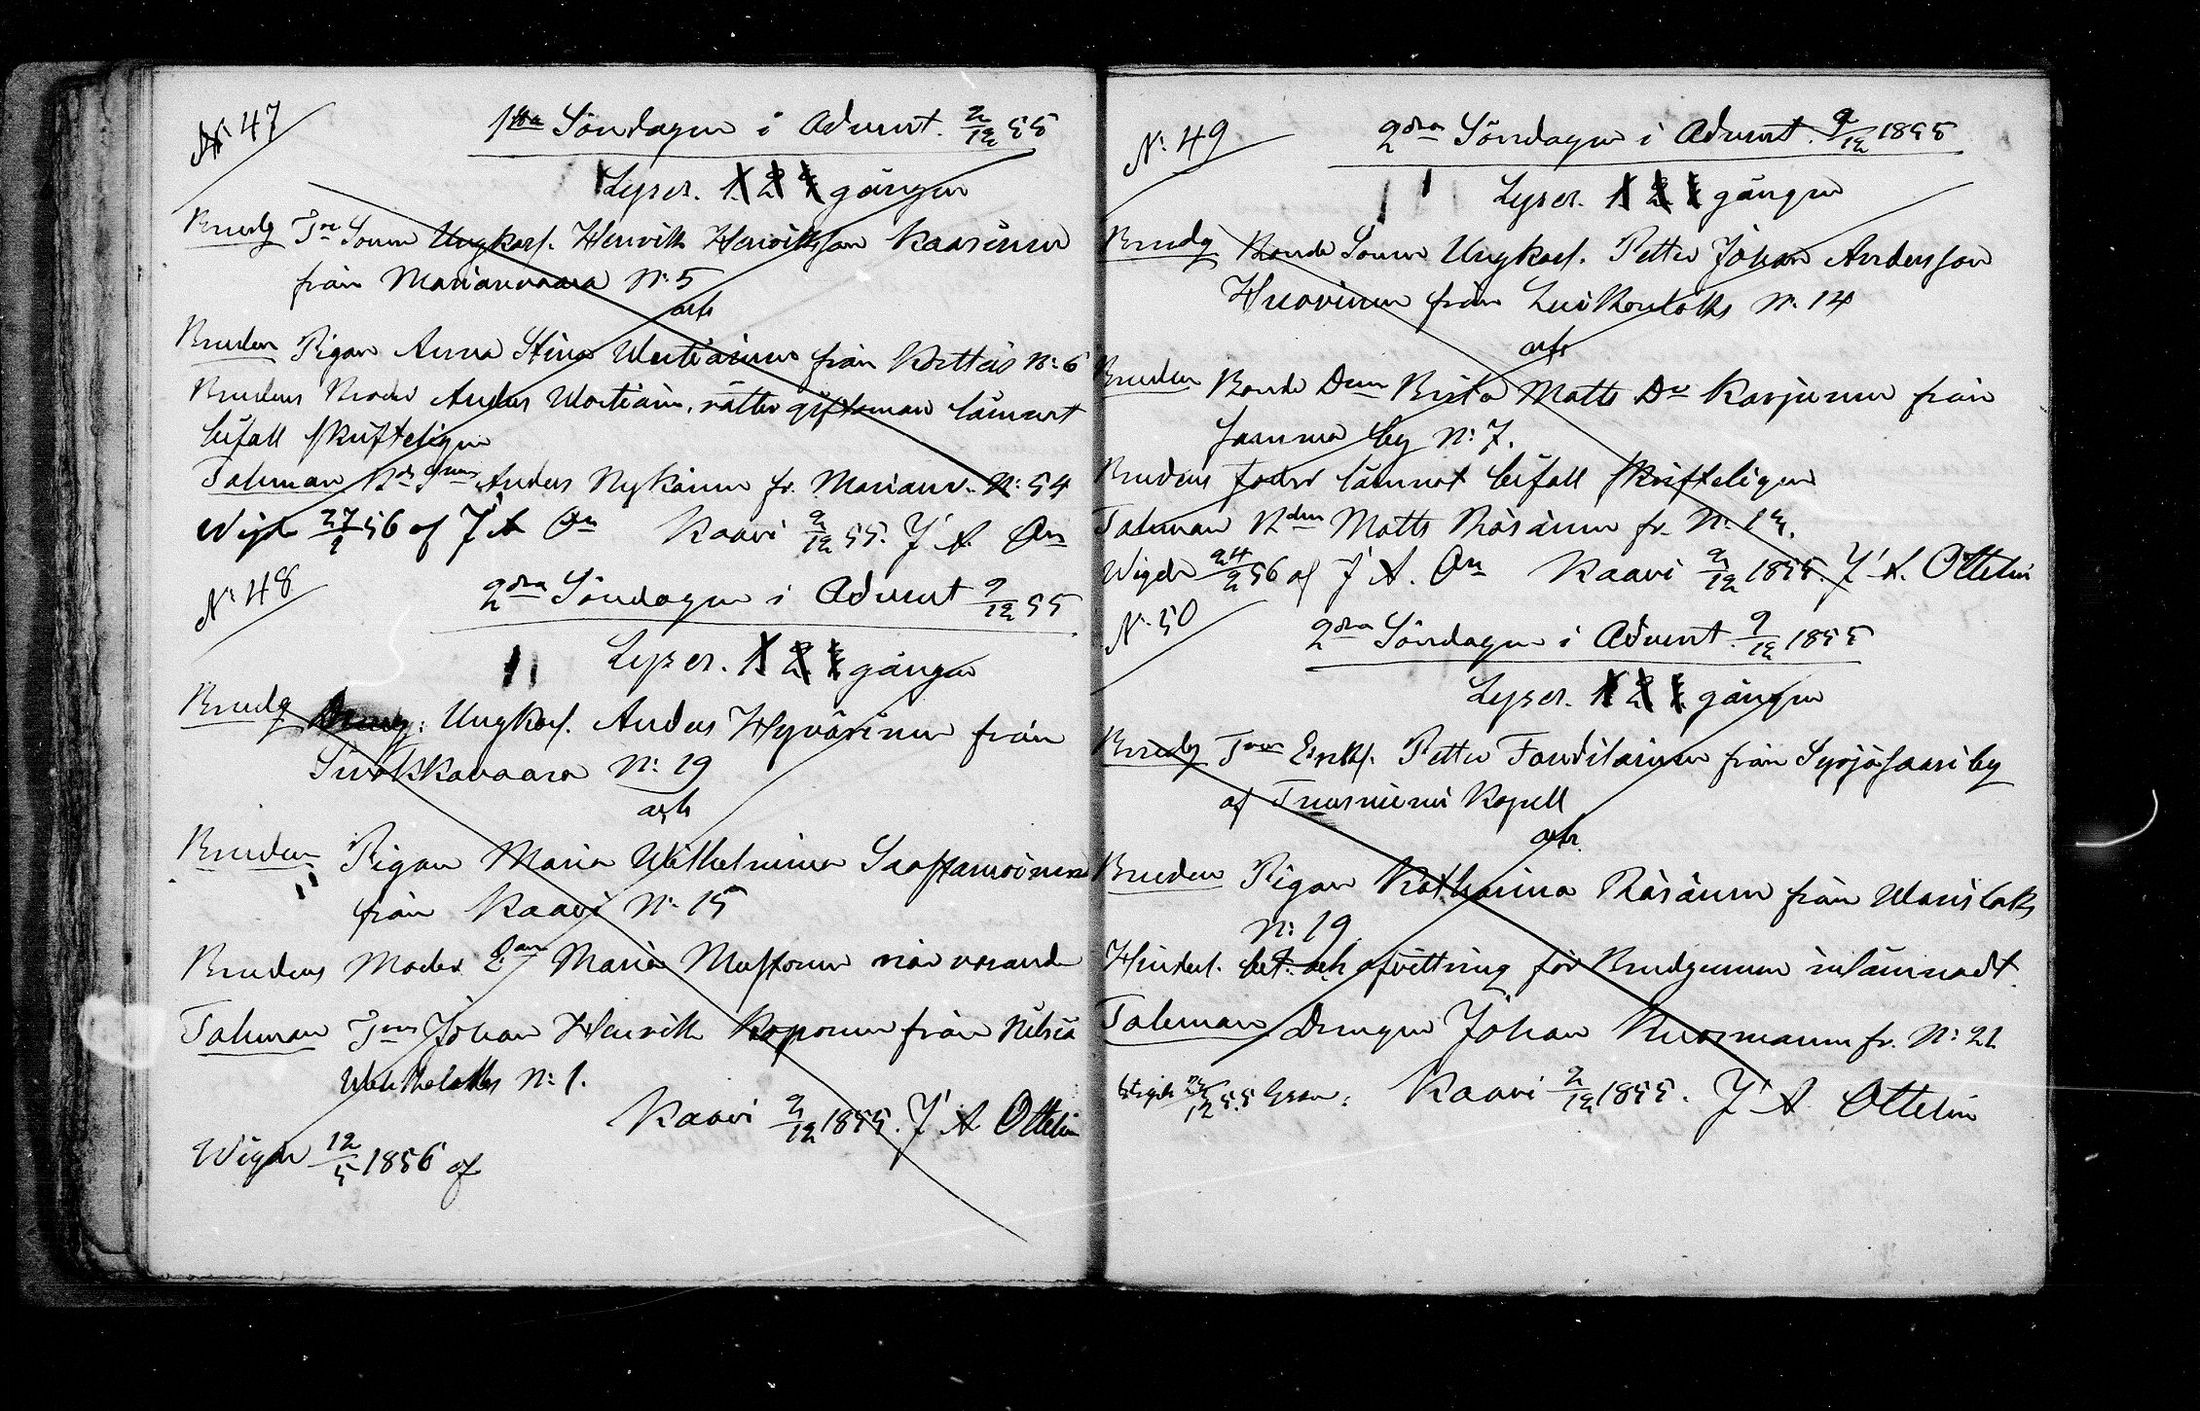 N: 47
1sta Söndagen i Advent. 2/12 55
Lyses. 1. 2. 3 gången
Brudg Tne Sonen Ungkarl. Henrik Henriksson Kaasinen
från Marianvaara N: 5
och
Bruden Pigan Anna Stina Wartiainen från Kortteis N: 6
Brudens Broder Anders Wartiain. rätter giftoman lämnat
bifall skrifteligen
Taleman Anders Nykänen fr. Marianv. N: 54
Wigde 27/1 56 af J A On Kaavi 9/12 55. J. A. On
N: 48
2dra Söndagen i Advent 9/12 55
Lyses. 1 2 3 gången
Brudg Ungkarl. Anders Hyvärinen från
Sivakkavaara N: 29
och
Bruden Pigan Maria Wilhelmina Saastamoinen
från Kaavi N: 15
Brudens Moder Maria Mustonen när varande
Taleman Johan Henrik Koponen från Nilsiä
N: 1.
Kaavi 9/12 1855. J A Ottelin
Wigde 12/5 1856 af
N: 49
2dra Söndagen i Advent. 9/12 1855
Lyses. 1. 2. 3 gången
Brudg Bonde Sonen Ungkarl. Petter Johan Andersson
Huovinen från Luikonlaks N: 14
och
Bruden Bonde Dren Brita Matts Dr Karjunen från
samma by N: 7.
Brudens Fader lämnat bifall skrifteligen
Taleman Bden Matts Räsänen fr. N: 12.
Wigde 24/2 56 af J A. On Kaavi 9/12 1855. J. A. Ottelin
N: 50
2dra Söndagen i Advent. 9/12 1855
Lyses. 1 2 3 gången
Brudg Enkl. Petter från Syrjäsaari by
af Tuusniemi Kapell
och
Bruden Pigan Katharina Räsänen från Warislaks
N: 19
Hindersl. bet. och afvittring för Brudgummen inlämnadt.
Taleman Drengen Johan Kuosmanen fr. N: 21
Wigde 12 55 Kaavi 9/12 1855. J A Ottelin